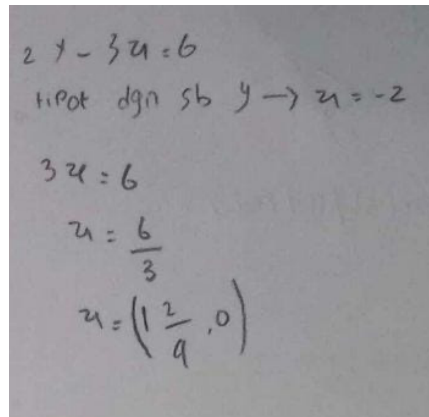 2y - 3x = 6
tipot dgn sb y → x = -2
3x = 6
x = 6/3
x = (1 2/9, 0)